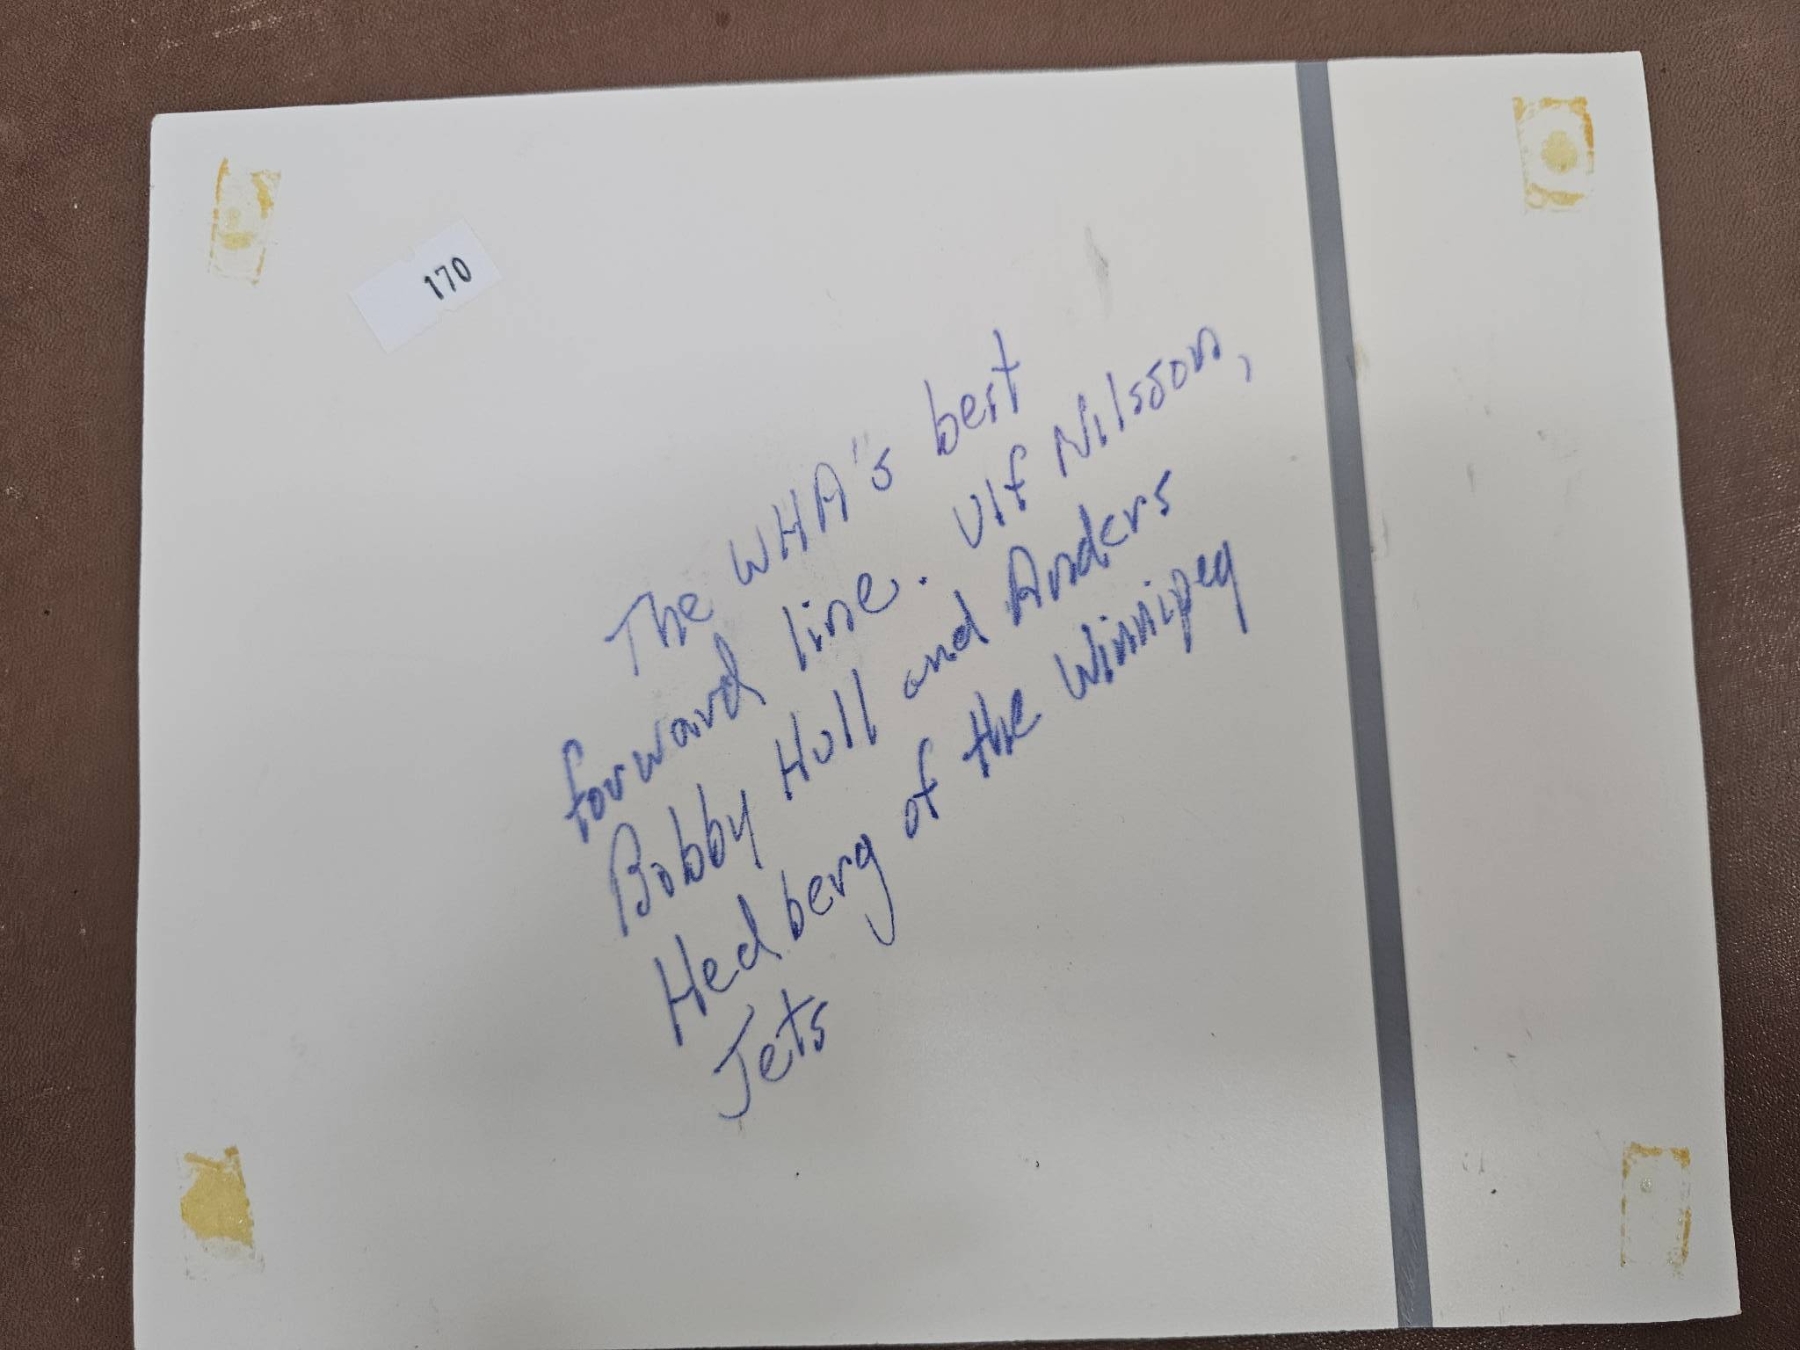 170
The WHA's best
forward line. Ulf Nilsson,
Bobby Hull and Anders
Hedberg of the Winnipeg
Jets